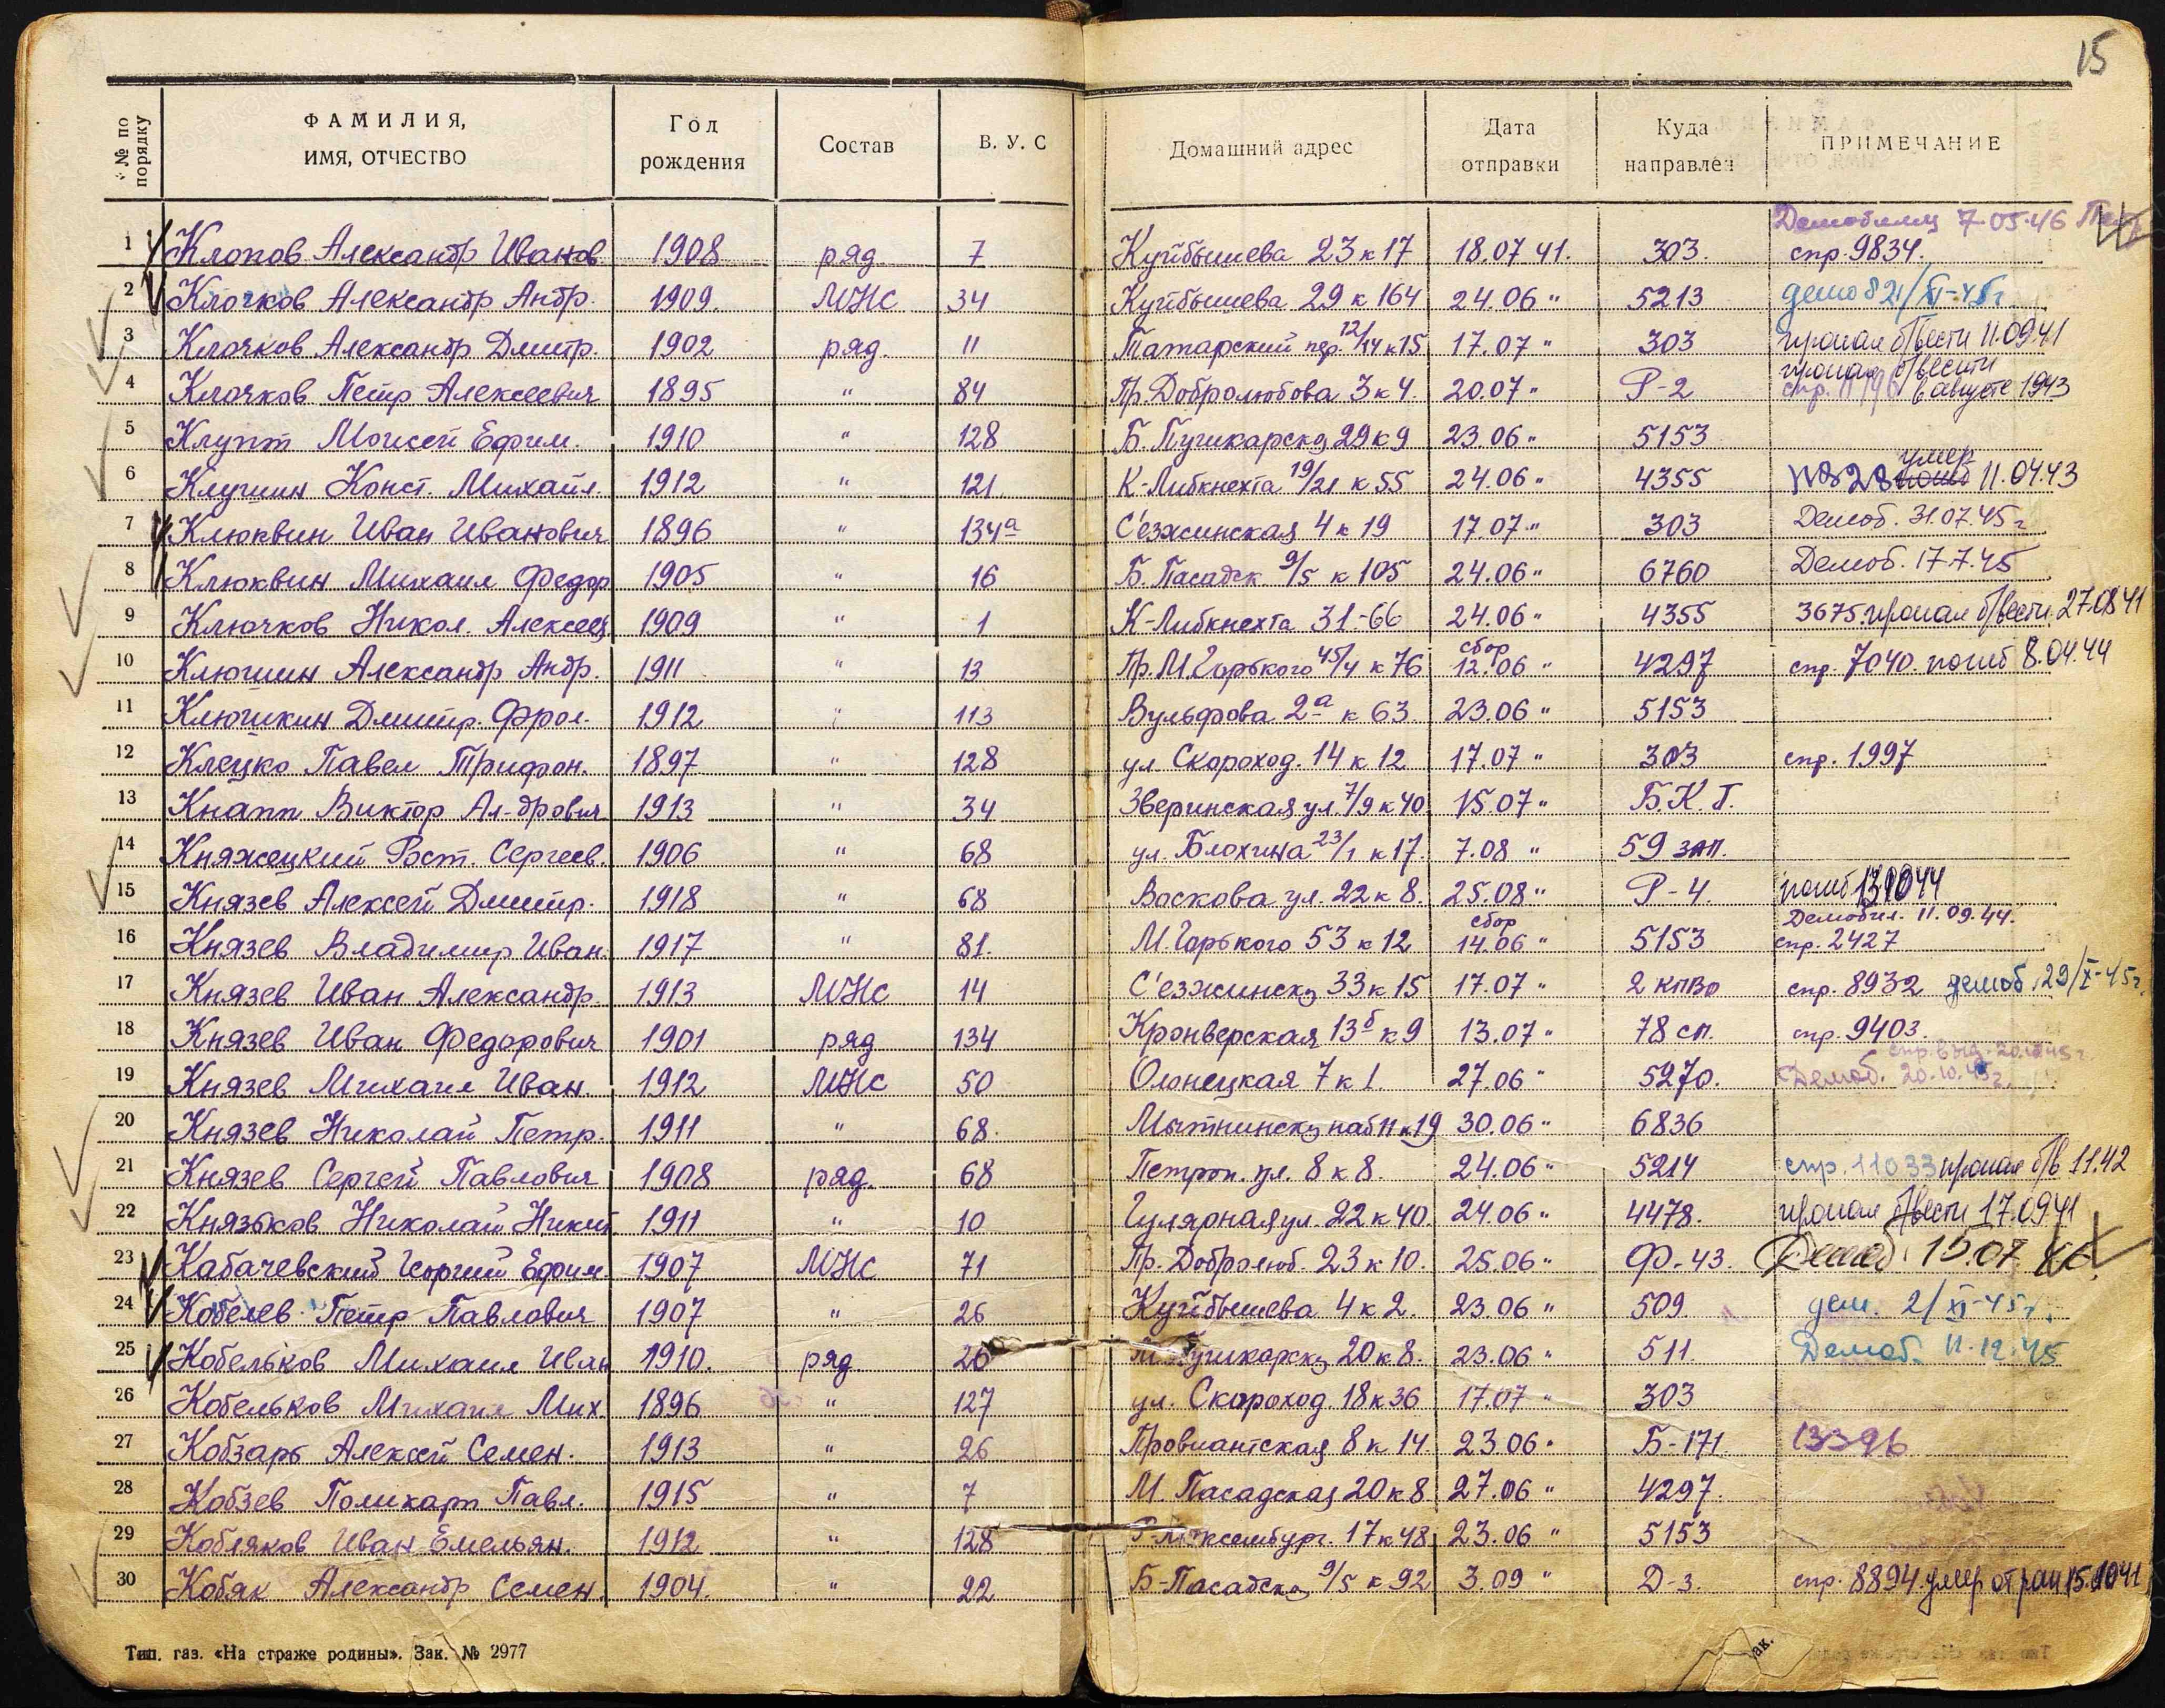 15
№ по порядку | ФАМИЛИЯ, ИМЯ, ОТЧЕСТВО | Год рождения | Состав | В. У. С | Домашний адрес | Дата отправки | Куда направлен | ПРИМЕЧАНИЕ
1 Клопов Александр Иванов 1908 ряд 7 Куйбышева 23 к 17 18.07 41. 303. Демобилиз 7.05.46 спр. 9834.
2 Клочков Александр Андр. 1909. МНС 34 Куйбышева 29 к 164 24.06 " 5213 демоб 21/XI-45г
3 Клочков Александр Дмитр. 1902 ряд. 11 Татарский пер. 12/14 к 15 17.07 " 303 пропал б/вести 11.09.41
4 Клочков Петр Алексеевич 1895 " 84 Пр. Добролюбова 3 к 4. 20.07 " Р-2 пропал б/вести спр. в августе 1943
5 Клупт Моисей Ефим. 1910 " 128 Б. Пушкарская 29 к 9 23.06 " 5153
6 Клушин Конст. Михайл. 1912 " 121 К-Либкнехта 19/21 к 55 24.06 " 4355 умер 11.04.43
7 Клюквин Иван Иванович 1896 " 134а С'езжинская 4 к 19 17.07 " 303 Демоб. 31.07.45г
8 Клюквин Михаил Федор 1905 " 16 Б. Пасадск 9/5 к 105 24.06 " 6760 Демоб. 17.7.45
9 Ключков Никол. Алексеев 1909 " 1 К-Либкнехта 31-66 24.06 " 4355 3675 пропал б/вести 27.08.41
10 Клюшин Александр Андр. 1911 " 13 Пр. М. Горького 45/4 к 76 сбор 12.06 " 4297 спр. 7040. погиб 8.04.44
11 Клюшкин Дмитр. Фрол. 1912 " 113 Вульфова 2а к 63 23.06 " 5153
12 Клецко Павел Трифон. 1897 " 128 ул Скороход. 14 к 12 17.07 " 303 спр. 1997
13 Кнапп Виктор Ал-дрович 1913 " 34 Зверинская ул. 7/9 к 40 15.07 " Б.К.Г.
14 Княжецкий Рост. Сергеев. 1906 " 68 ул. Блохина 23/1 к 17. 7.08 " 59 зап.
15 Князев Алексей Дмитр. 1918 " 68 Васкова ул. 22 к 8. 25.08 " Р-4. погиб 13.10.44
16 Князев Владимир Иван. 1917 " 81. М. Горького 53 к 12 сбор 14.06 " 5153 Демобил. 11.09.44. спр. 2427
17 Князев Иван Александр. 1913 МНС 14 С'езжинск. 33 к 15 17.07 " 2 КПВО спр. 8932 демоб. 29/X-45г.
18 Князев Иван Федорович 1901 ряд 134 Кронверская 13б к 9 13.07 " 78 сп. спр. 9403.
19 Князев Михаил Иван. 1912 МНС 50 Олонецкая 7 к 1. 27.06 " 5270. спр. выд. Демоб. 20.10.45г.
20 Князев Николай Петр. 1911 " 68. Мытнинск. наб 11 к 19 30.06 " 6836
21 Князев Сергей Павлович 1908 ряд. 68 Петроп. ул. 8 к 8. 24.06 " 5214 спр. 11033 пропал б/в 11.42
22 Князьков Николай Никит 1911 " 10 Гулярная ул. 22 к 40. 24.06 " 4478. пропал б/вести 17.09.41
23 Кабачевский Георгий Ефим. 1907 МНС 71 Пр. Доброл­юб. 23 к 10. 25.06 " Ф-43. Демоб. 15.07.46.
24 Кобелев Петр Павлович 1907 " 26 Куйбышева 4 к 2. 23.06 " 509 дем. 2/XI-45г.
25 Кобельков Михаил Иван 1910. ряд 26 М. Пушкарск. 20 к 8. 23.06 " 511 Демоб. 11.12.45
26 Кобельков Михаил Мих. 1896 " 127 ул. Скороход 18 к 36 17.07 " 303
27 Кобзарь Алексей Семен. 1913 " 26 Провиантская 8 к 14 23.06 " Б-171 13396
28 Кобзев Поликарп Павл. 1915 " 7 М. Пасадская 20 к 8 27.06 " 4297.
29 Кобляков Иван Емельян. 1912 " 128 Р-Люксембург. 17 к 48 23.06 " 5153
30 Кобяк Александр Семен. 1904. " 22 Б-Пасадска 9/5 к 92 3.09 " Д-3. спр. 8894 умер от ран 15.10.41
Тип. газ. «На страже родины». Зак. № 2977